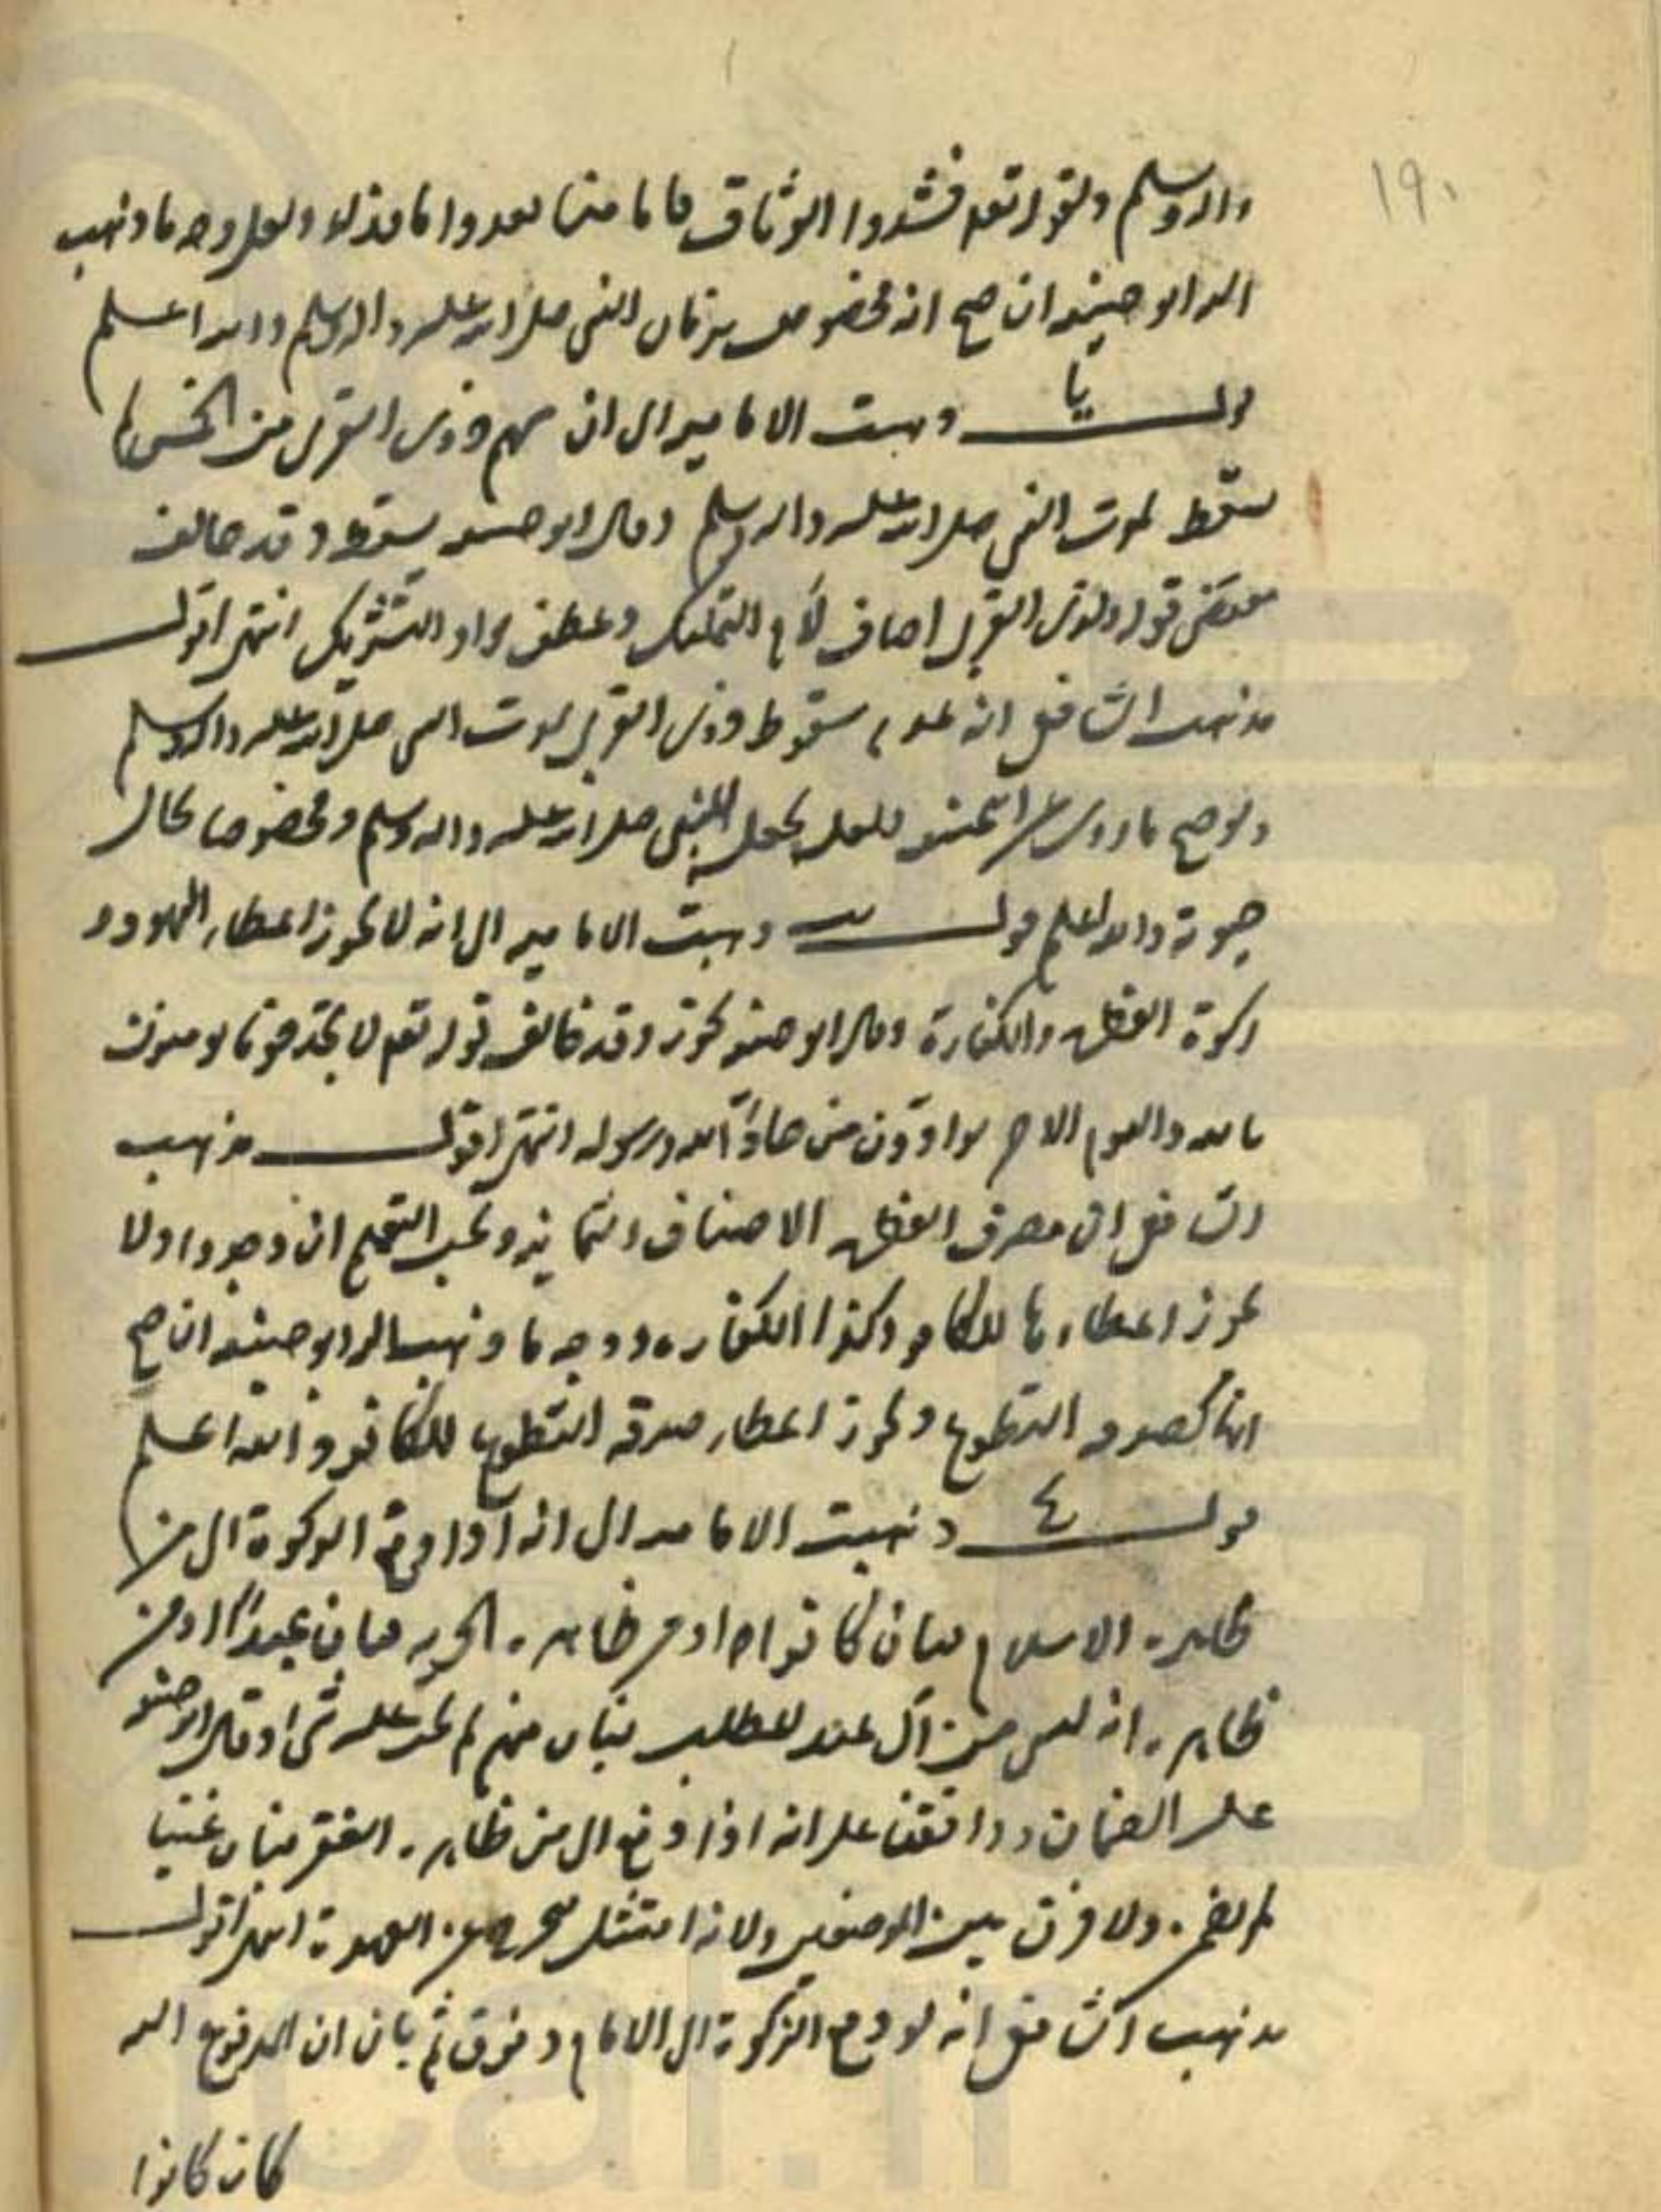 ١٩٠
واله وسلم ولقوله تعم فشدوا الوثاق فاما منا بعد واما فداء ولعل وجه ما ذهب
اليه ابو حنيفه ان صح انه مخصوص بزمان النبي صلى الله عليه واله وسلم والله اعلم
قوله يا ذهبت الاماميه الى ان سهم ذوى القربى من الخمس لا
يسقط بموت النبي صلى الله عليه واله وسلم وقال ابو حنيفه يسقط وقد خالف
مقتضى قوله ولذى القربى اضاف بلام التمليك وعطف بواو التشريك انتهى اقول
مذهب الشافعي انه عدم سقوط ذوى القربى بموت النبي صلى الله عليه واله وسلم
ولو صح ما روى عن ابي حنيفه فلعله يجعل للنبي صلى الله عليه واله وسلم ومخصوصا بحال
حيوته والله اعلم قوله يب ذهبت الاماميه الى انه لا يجوز اعطاء اليهود
زكوة الفطر والكفارة وقال ابو حنيفه يجوز وقد خالف قوله تعم لا تجد قوما يومنون
بالله واليوم الاخر يوادون من حاد الله ورسوله انتهى اقول مذهب
الشافعي ان مصرف الفطر الاصناف الثمانيه ويجب التعميم ان وجدوا ولا
يجوز اعطاءها للكافر وكذا الكفاره ووجه ما ذهب اليه ابو حنيفه ان صح
انها كصدقه التطوع ويجوز اعطاء صدقه التطوع للكافر والله اعلم
قوله ذهبت الاماميه الى انه اذا دفع الزكوة الى من
ظاهره الاسلام فبان كافرا او من ظاهره الحريه فبان عبدا او من
ظاهره انه ليس من آل عبد المطلب فبان منهم لم يجب عليه شئ وقال ابو حنيفه
عليه الضمان ووافقنا على انه اذا دفع الى من ظاهره الفقر فبان غنيا
لم يضمن ولا فرق بين الموضعين ولانه امتثل فيخرج عن العهدة انتهى اقول
مذهب الشافعي انه لو دفع الزكوة الى الامام وفرق ثم بان ان المدفوع اليه
كان كافرا